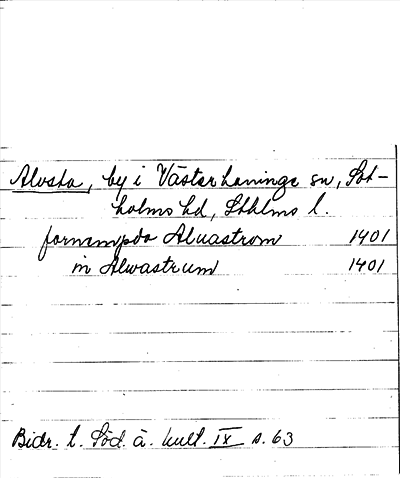 Alvsta, by i Västerhaninge sn, Sot-
holms hd, Sthlms l.
fornempda Aluastrom 1401
in Alwastrum 1401
Bidr. t. Söd. ä. kult. IX s. 63